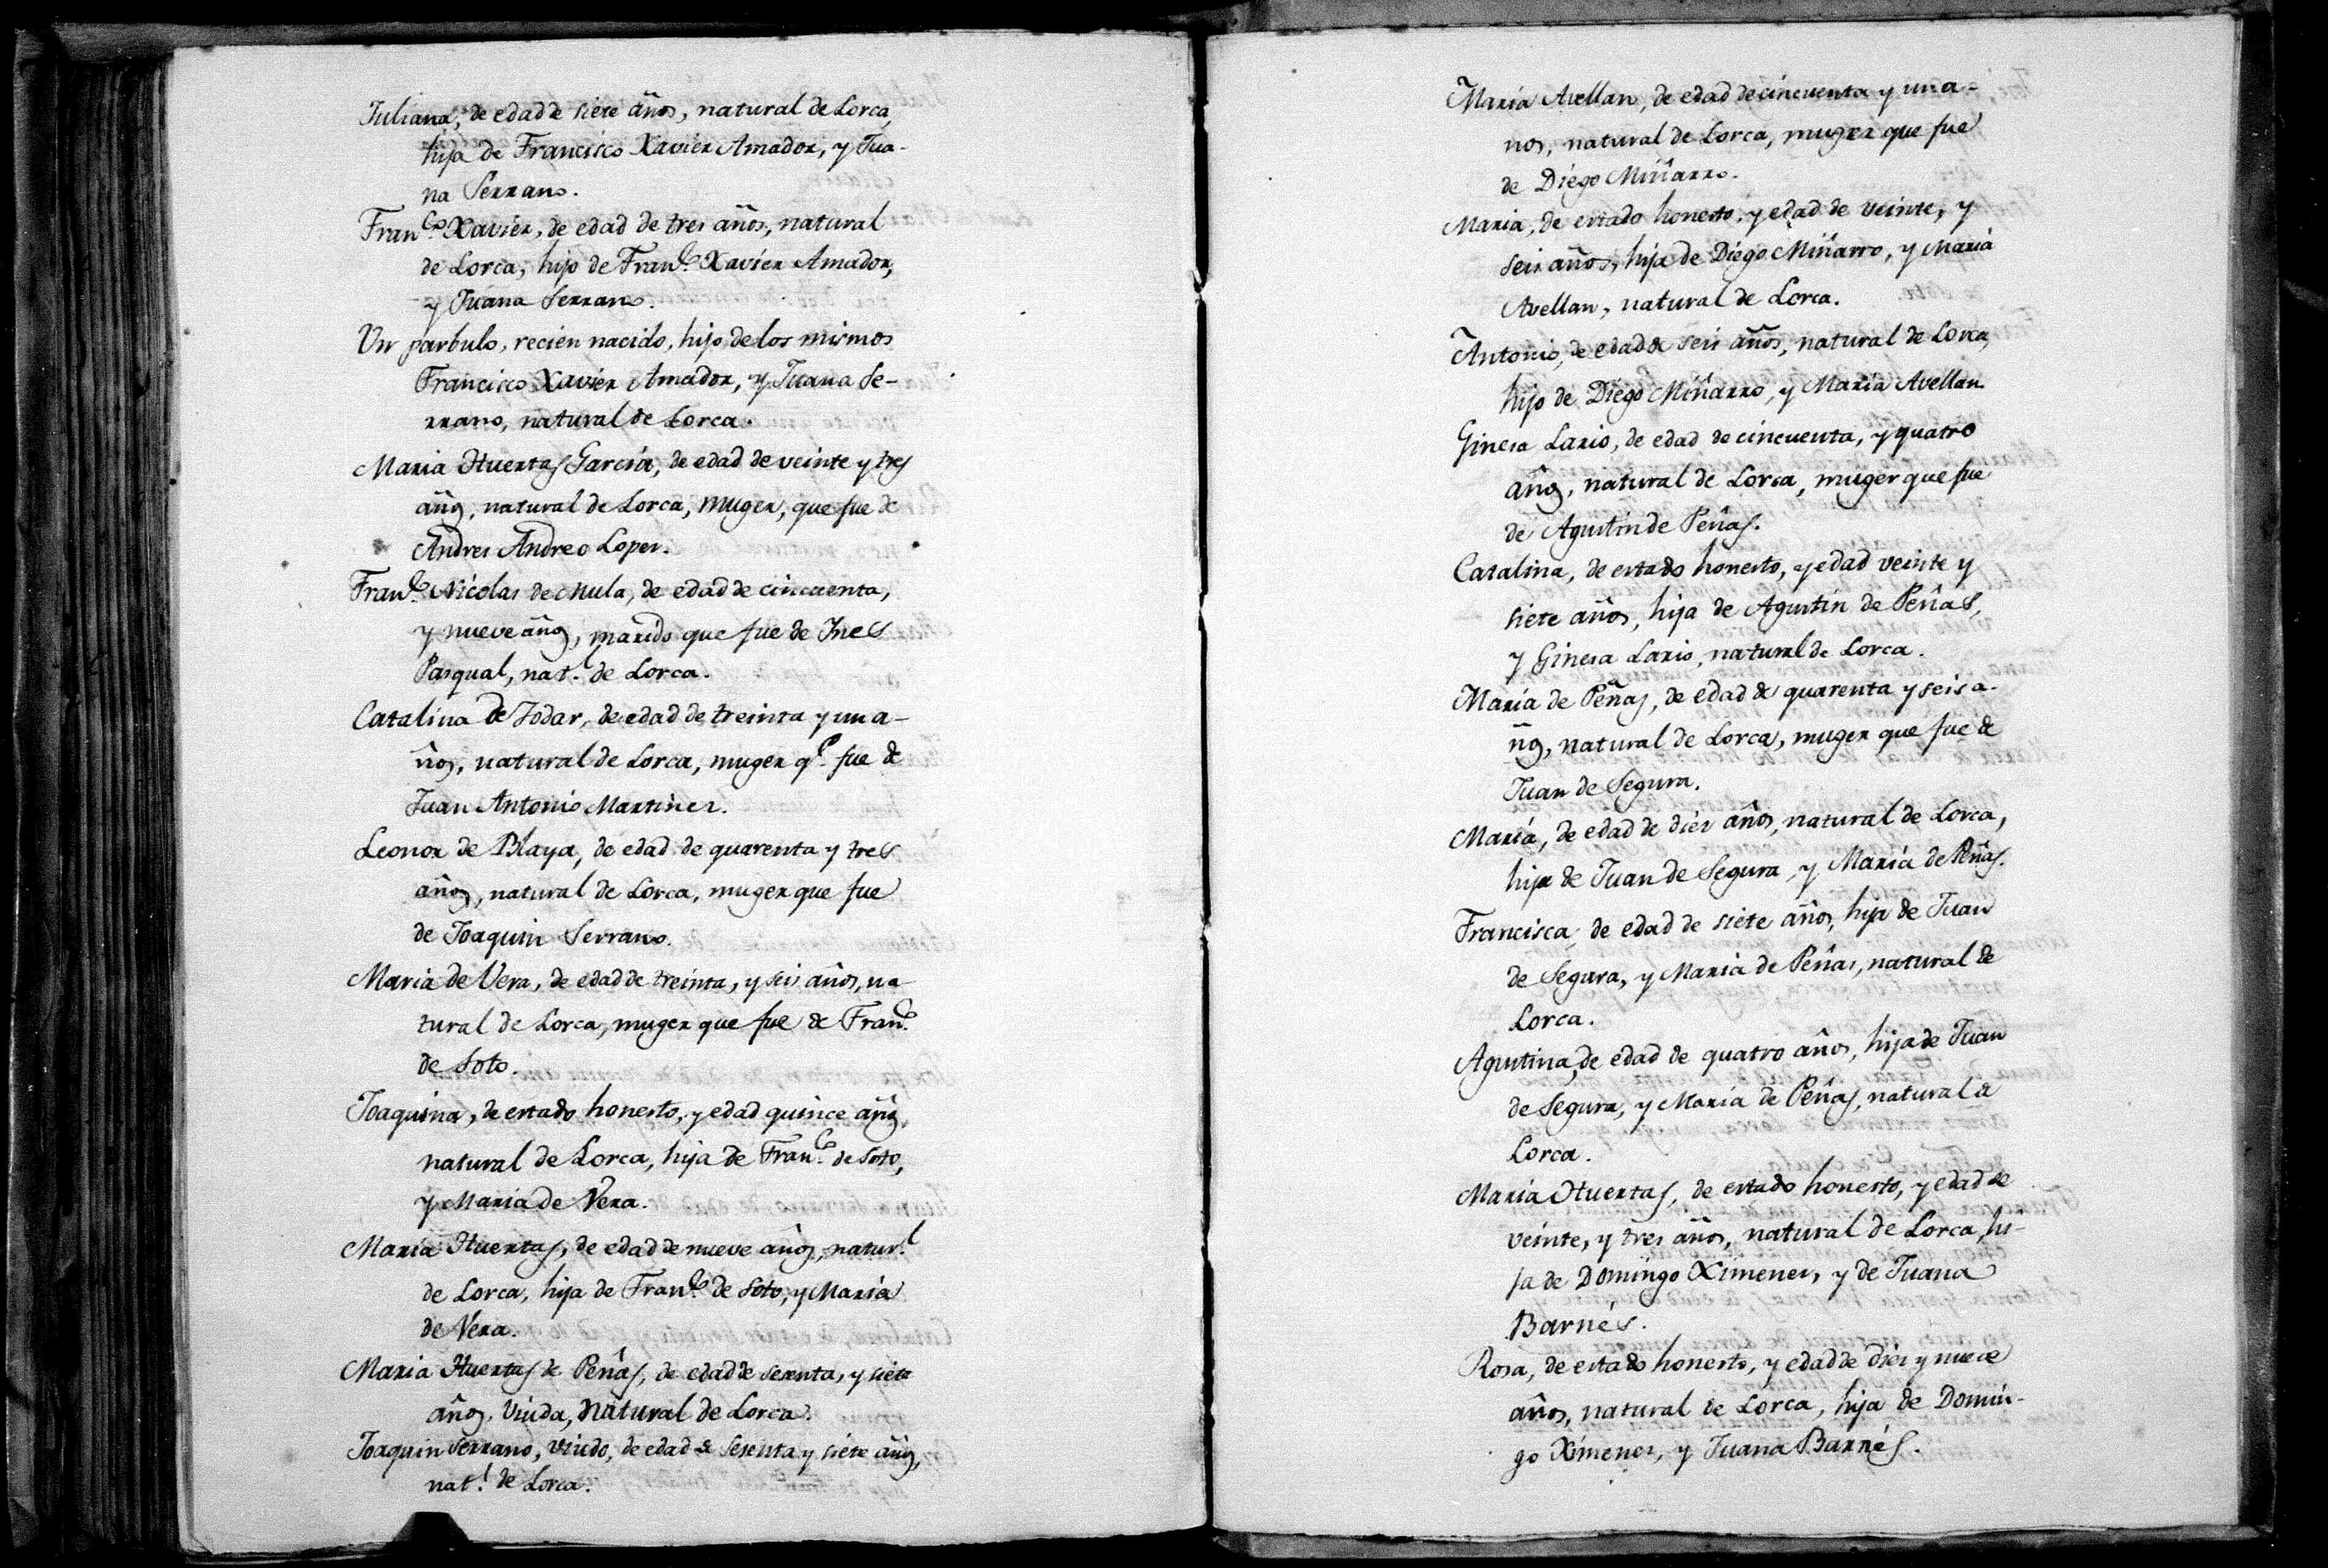 Juliana, de edad de siete años, natural de Lorca,
hija de Francisco Xavier Amador, y Jua-
na Serrano.
Fran.co Xavier, de edad de tres años, natural
de Lorca, hijo de Fran.co Xavier Amador,
y Juana Serrano.
Un parbulo, recien nacido, hijo de los mismos
Francisco Xavier Amador, y Juana Se-
rrano, natural de Lorca.
Maria Huertas Garcia, de edad de veinte y tres
años, natural de Lorca, muger, que fue de
Andres Andreo Lopez.
Fran.co Nicolas de Mula, de edad de cincuenta,
y nueve años, marido que fue de Ines
Pasqual, nat.l de Lorca.
Catalina de Jodar, de edad de treinta y un a-
ños, natural de Lorca, muger q.e fue de
Juan Antonio Martinez.
Leonor de Blaya, de edad de quarenta y tres
años, natural de Lorca, muger que fue
de Joaquin Serrano.
Maria de Vera, de edad de treinta, y seis años, na-
tural de Lorca, muger que fue de Fran.co
de Soto.
Joaquina, de estado honesto, y edad quince años,
natural de Lorca, hija de Fran.co de Soto,
y Maria de Vera.
Maria Huertas, de edad de nueve años, natur.l
de Lorca, hija de Fran.co de Soto, y Maria
de Vera.
Maria Huertas de Peñas, de edad de sesenta, y siete
años, Viuda, natural de Lorca.
Joaquin Serrano, viudo, de edad de sesenta y siete años,
nat.l de Lorca.
Maria Avellan, de edad de cincuenta y un a-
nos, natural de Lorca, muger que fue
de Diego Miñarro.
Maria, de estado honesto, y edad de veinte, y
seis años, hija de Diego Miñarro, y Maria
Avellan, natural de Lorca.
Antonio, de edad de seis años, natural de Lorca,
hijo de Diego Miñarro, y Maria Avellan.
Ginesa Lario, de edad de cincuenta, y quatro
años, natural de Lorca, muger que fue
de Agustin de Peñas.
Catalina, de estado honesto, y edad veinte y
siete años, hija de Agustin de Peñas,
y Ginesa Lario, natural de Lorca.
Maria de Peñas, de edad de quarenta y seis a-
ños, natural de Lorca, muger que fue de
Juan de Segura.
Maria, de edad de diez años, natural de Lorca,
hija de Juan de Segura, y Maria de Peñas.
Francisca, de edad de siete años, hija de Juan
de Segura, y Maria de Peñas, natural de
Lorca.
Agustina, de edad de quatro años, hija de Juan
de Segura, y Maria de Peñas, natural de
Lorca.
Maria Huertas, de estado honesto, y edad de
veinte, y tres años, natural de Lorca, hi-
ja de Domingo Ximenez, y de Juana
Barnés.
Rosa, de estado honesto, y edad de diez y nueve
años, natural de Lorca, hija de Domin-
go Ximenez, y Juana Barnés.